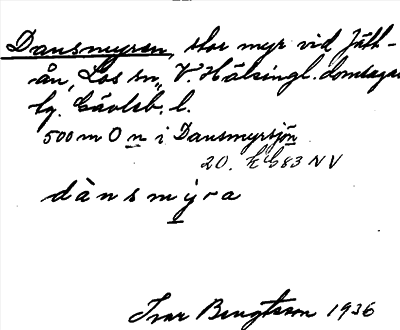 Dansmyren, stor myr vid Jätt-
ån, Los sn, V. Hälsingl. domsaga
lg. Gävleb. l.
500 m O n i Dansmyrsjön
20. k 683 NV
dànsmýra
Ivar Bengtsson 1936